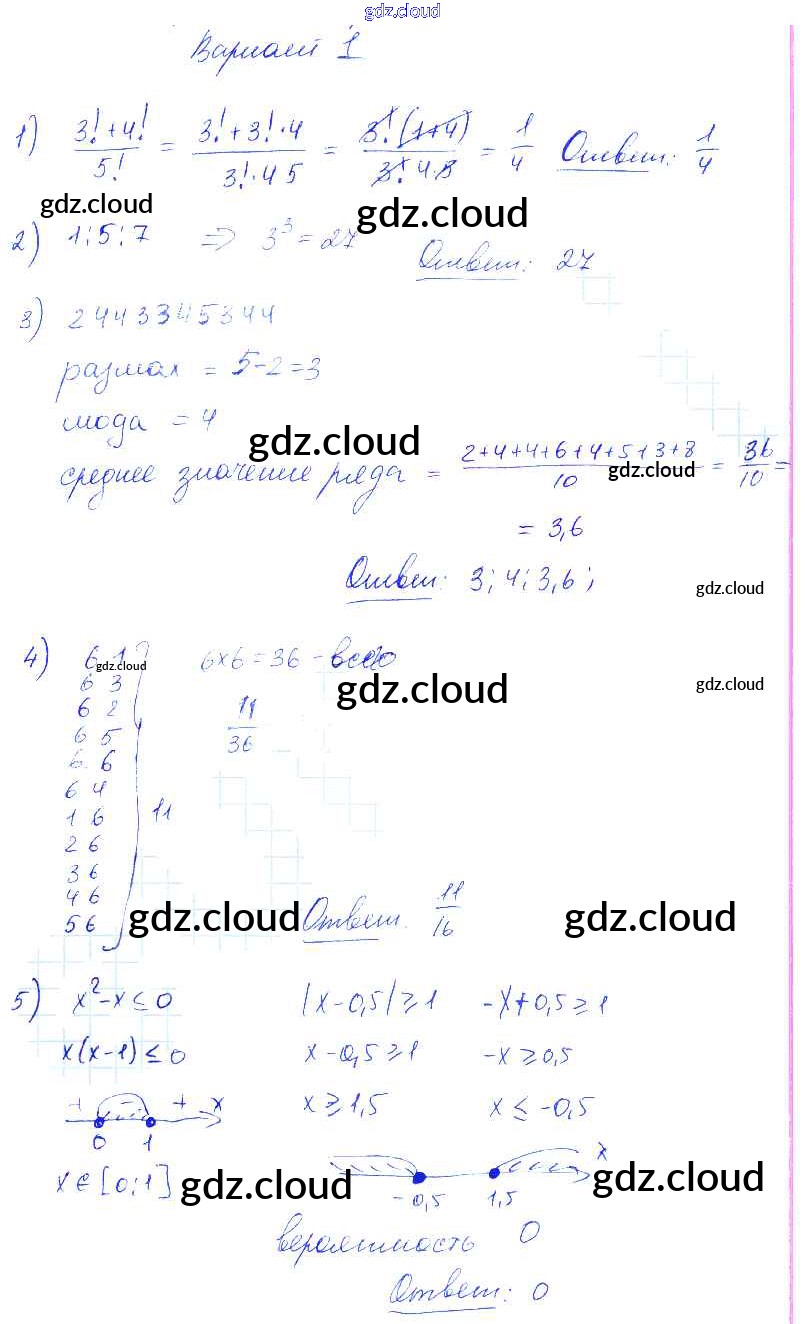 gdz.cloud
Вариант 1
1) (3! + 4!)/5! = (3! + 3!·4)/(3!·4 5) = (3!(1+4))/(3! 4·5) = 1/4 Ответ: 1/4
gdz.cloud gdz.cloud
2) 1; 5; 7 => 3³ = 27 Ответ: 27
3) 2 4 4 3 3 4 5 3 4 4
размах = 5-2=3
мода = 4
gdz.cloud
среднее значение ряда = (2+4+4+6+4+5+3+8)/10 = 36/10 =
gdz.cloud
= 3,6
Ответ: 3; 4; 3,6;
gdz.cloud
4) 6 1 6×6=36 - всего
gdz.cloud
6 3
gdz.cloud gdz.cloud
6 2 11/36
6 5
6 6
6 4
1 6 11
2 6
3 6
4 6
5 6
gdz.cloud Ответ. 11/16 gdz.cloud
5) x²-x ≤ 0 |x-0,5| ≥ 1 -x+0,5 ≥ 1
x(x-1) ≤ 0 x-0,5 ≥ 1 -x ≥ 0,5
+ - + x x ≥ 1,5 x ≤ -0,5
0 1
x ∈ [0;1] gdz.cloud x gdz.cloud
-0,5 1,5
вероятность 0
Ответ: 0